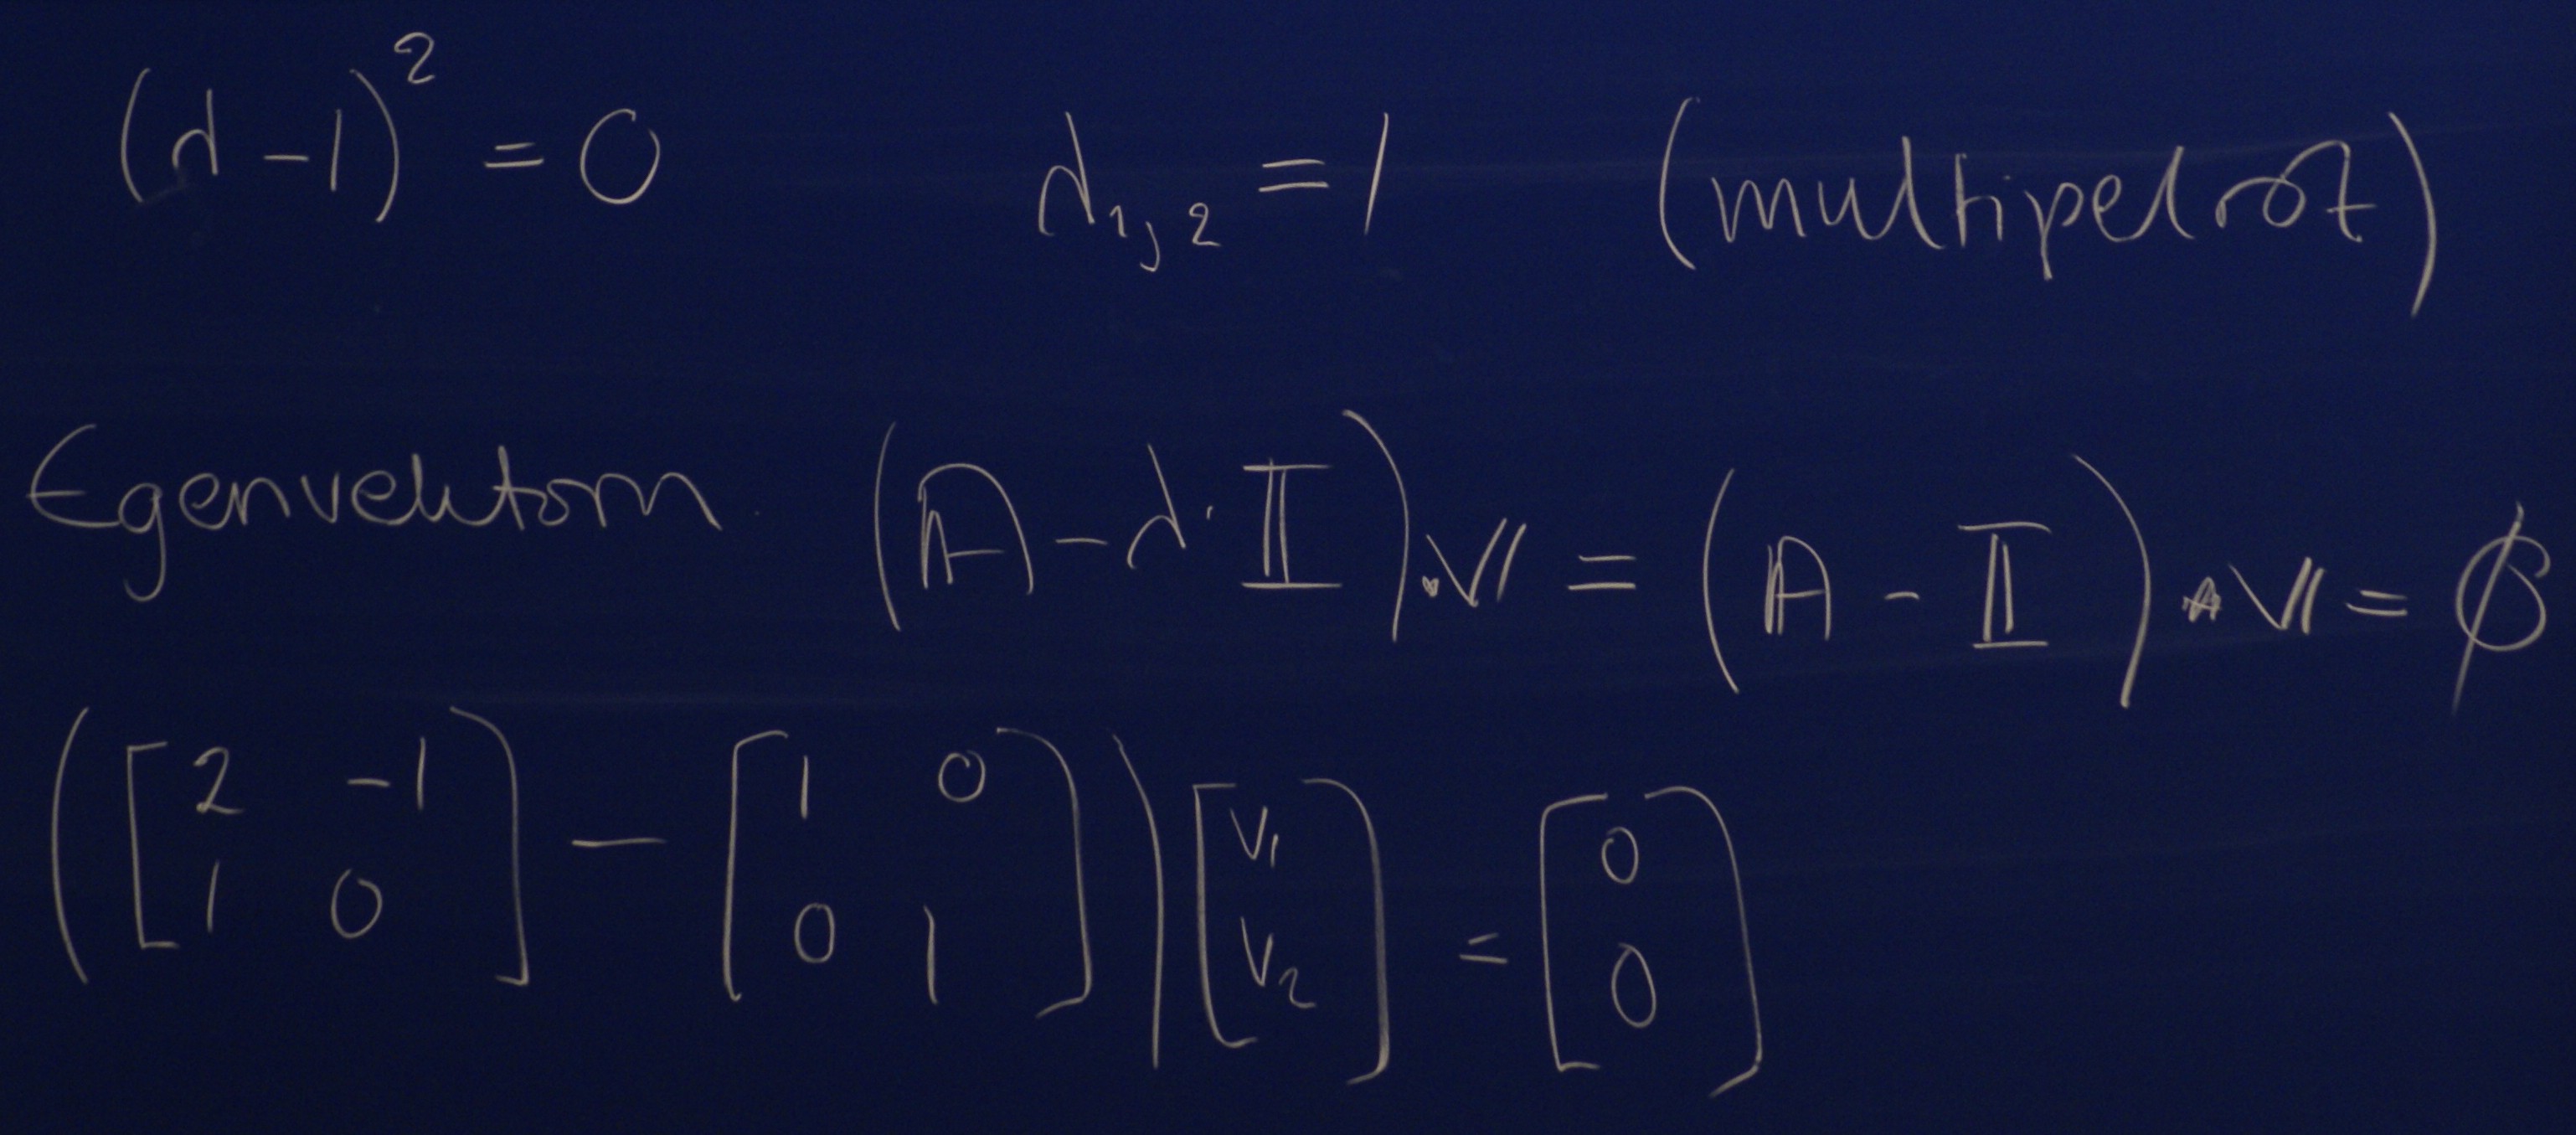 (λ - 1)² = 0 λ₁,₂ = 1 (multipelrot)
Egenvektorn (A - λ·I)·V = (A - I)·V = 0
([2 -1; 1 0] - [1 0; 0 1]) [v₁; v₂] = [0; 0]